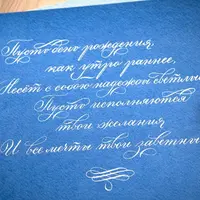 Пусть день рождения,
как утро раннее,
Несёт с собою надежды светлые
Пусть исполняются
твои желания
И все мечты твои заветные